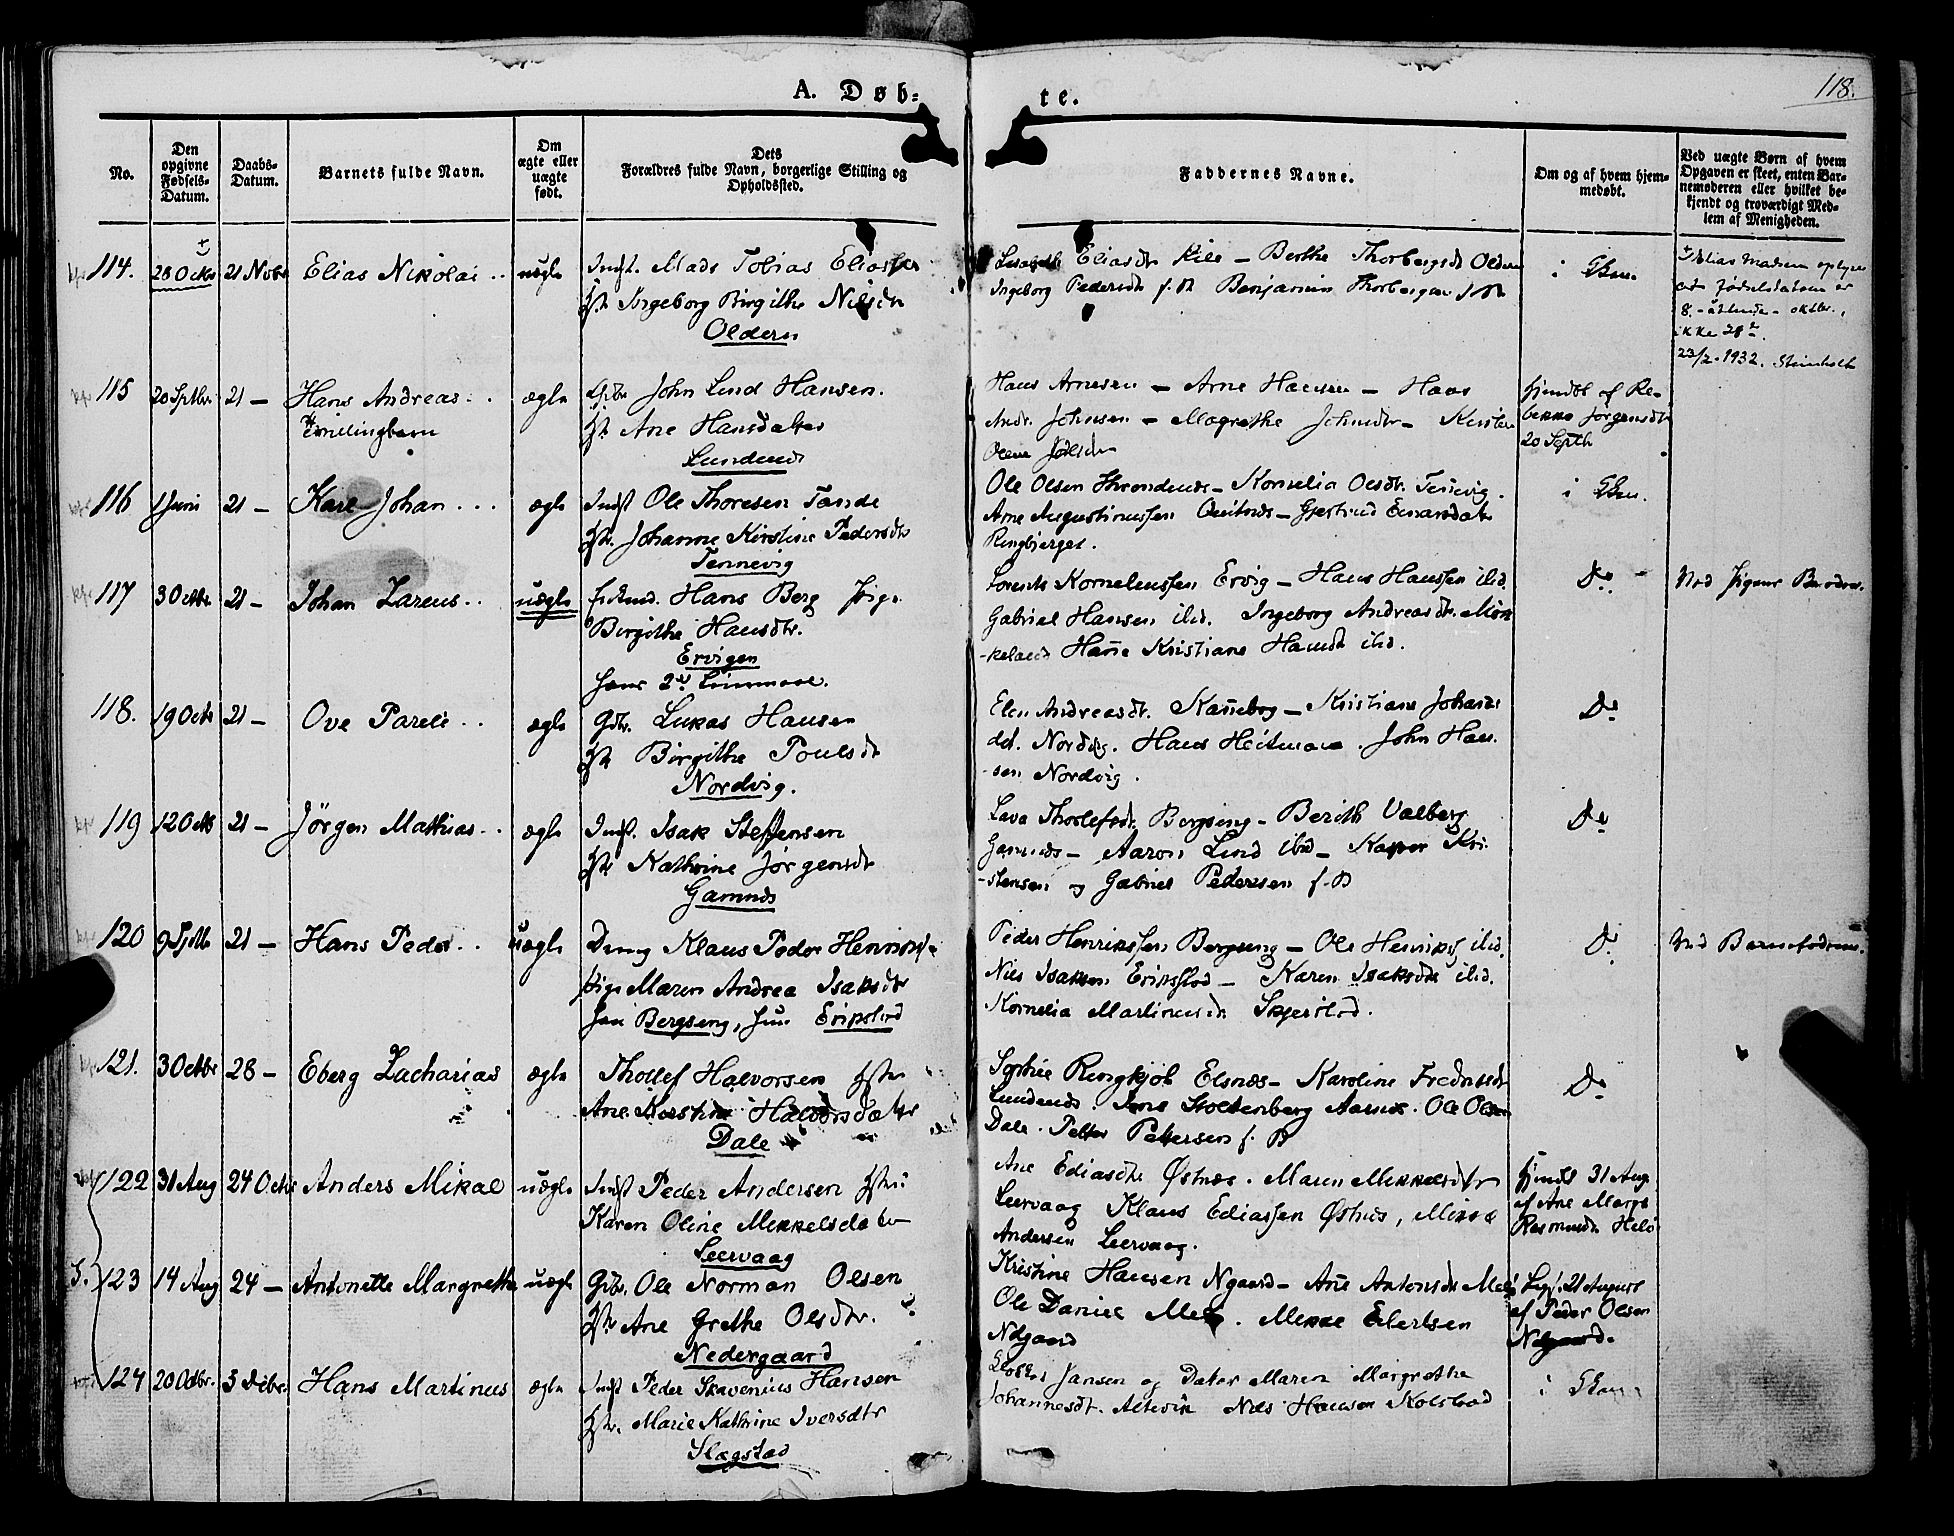 118.
A. Døb-
te.
No.
Den opgivne Fødsels-Datum.
Daabs-Datum.
Barnets fulde Navn.
Om ægte eller uægte født.
Dets Forældres fulde Navn, borgerlige Stilling og Opholdssted.
Faddernes Navne.
Om og af hvem hjem-medøbt.
Ved uægte Børn af hvem Opgaven er skeet, enten Bar-nemoderen eller hvilket be-kjendt og troværdigt Med-lem af Menigheden.
114. 28 Octbr 21 Novbr Elias Nikolai
Indst. Mads Tobias
Ingeborg Birgithe Nilsdtr
Oldern
Eliasdtr Kile - Berthe Thorbergsdtr Oldern
Ingeborg Pedersdtr Benjamin
Elias Madsen oplyser
at fødselsdatoen er
8. - åttende - oktbr.,
ikke 28de.
23/2-1932. Steinholt
115 20 Sptbr 21 - Hans Andreas ægte
Tvillingbarn
John Lind Hansen.
Ane Hansdatter
Lundenes
Hans Arnesen - Arne Hansen - Hans
Andr. Johnsen - Magrethe Johnsdtr -
Hjemdbt af Re-
bekka Jørgensdtr
20 Septb
116 1 Juni 21 - Karl Johan ... ægte
Indst Ole Thoresen Tande
Johanne Kirstine Pedersdtr
Tennevig
Ole Olsen - Kornelia Olsdtr. Tennevig.
Arne Augustinussen - Gjertrud
Ringbjerget.
117 3 Octbr 21 - Johan Zareus .. uægte
Hans Berg Pige
Birgithe Hansdtr.
Ervigen
hans 2det Leiermaal.
Kornelenssen Ervig - Hans Hanssen ibid.
Gabriel Hansen ibid. Ingeborg Andreasdtr.
Hanne Kristiane Hansdtr ibid.
Do
Ved Pigens Broder.
118. 19 Octb 21 - Ove Parelí .. ægte
Gdbr. Lukas Hansen
Birgithe Poulsdtr
Nordvig.
Elen Andreasdtr. Kanebog - Kristiane Johans
dat. Nordvig. Hans Heitmann. John Han-
sen Nordvig.
Do
119 12 Octb 21 - Jørgen Mathias .. ægte
Indst. Isak Steffensen
Kathrine Jørgensdtr
Gamnes
Lava Thollefsdtr. Bergseng - Berith Valberg
Gamnes - Aaron Lind ibid - Kasper Kri-
stensen og Gabriel Pedersen
Do
120 21 - Hans Peder .. uægte
Dreng Klaus Peder
Pige Maren Andrea Isaksdtr
han Bergseng, hun Erikstad
Peder Henrikssen Bergseng - Ole Henriks. ibid.
Nils Isaksen Erikstad - Karen Isaksdtr ibid.
Kornelia Martinusdtr Skjerstad.
Do
Ved Barnefaderen.
121. 3 Octbr 28 - Eberg Zacharias ægte
Thollef Halvorsen Hstru
Ane Kirstine Halvorsdatter
Dale
Sophie Ringkjøb Elsnæs - Karoline Fredriksdtr
Lundenes. Jens Stoltenberg Aarnes. Ole Olsen
Dale. Petter Petersen
Do
122 31 Aug 24 Octb Anders Mikal uægte
Indst Peder Andersen Hstru
Karen Oline Mikkelsdatter
Leervaag
Ane Ediasdtr Østnes. Maren Mikkelsdtr
Leervaag Klaus Ediassen Østnes, Mikal
Andersen Leervaag.
Hjemdbt 31 Aug
af Ane Margr
Rasmusdtr
123 14 Aug 24 - Antonette Margrethe uægte
Gdbr. Ole Norman Olsen
Ane Grethe Olsdtr.
Nedergaard
Kristine Hansen Ngaard - Ane Antonsdtr
Ole Daniel . Mikkel Edertsen
Ndgaard
21 August
af Peder Olsen
Ndgaard.
124 20 Octbr. 3 Debr. Hans Martinus ægte
Indst Peder Skavenius Hansen
Marie Kathrine Iversdtr
Slagstad
Jansen og Datter Maren Margrethe
Johannesdt. Altevik Nils Hansen Kolstad